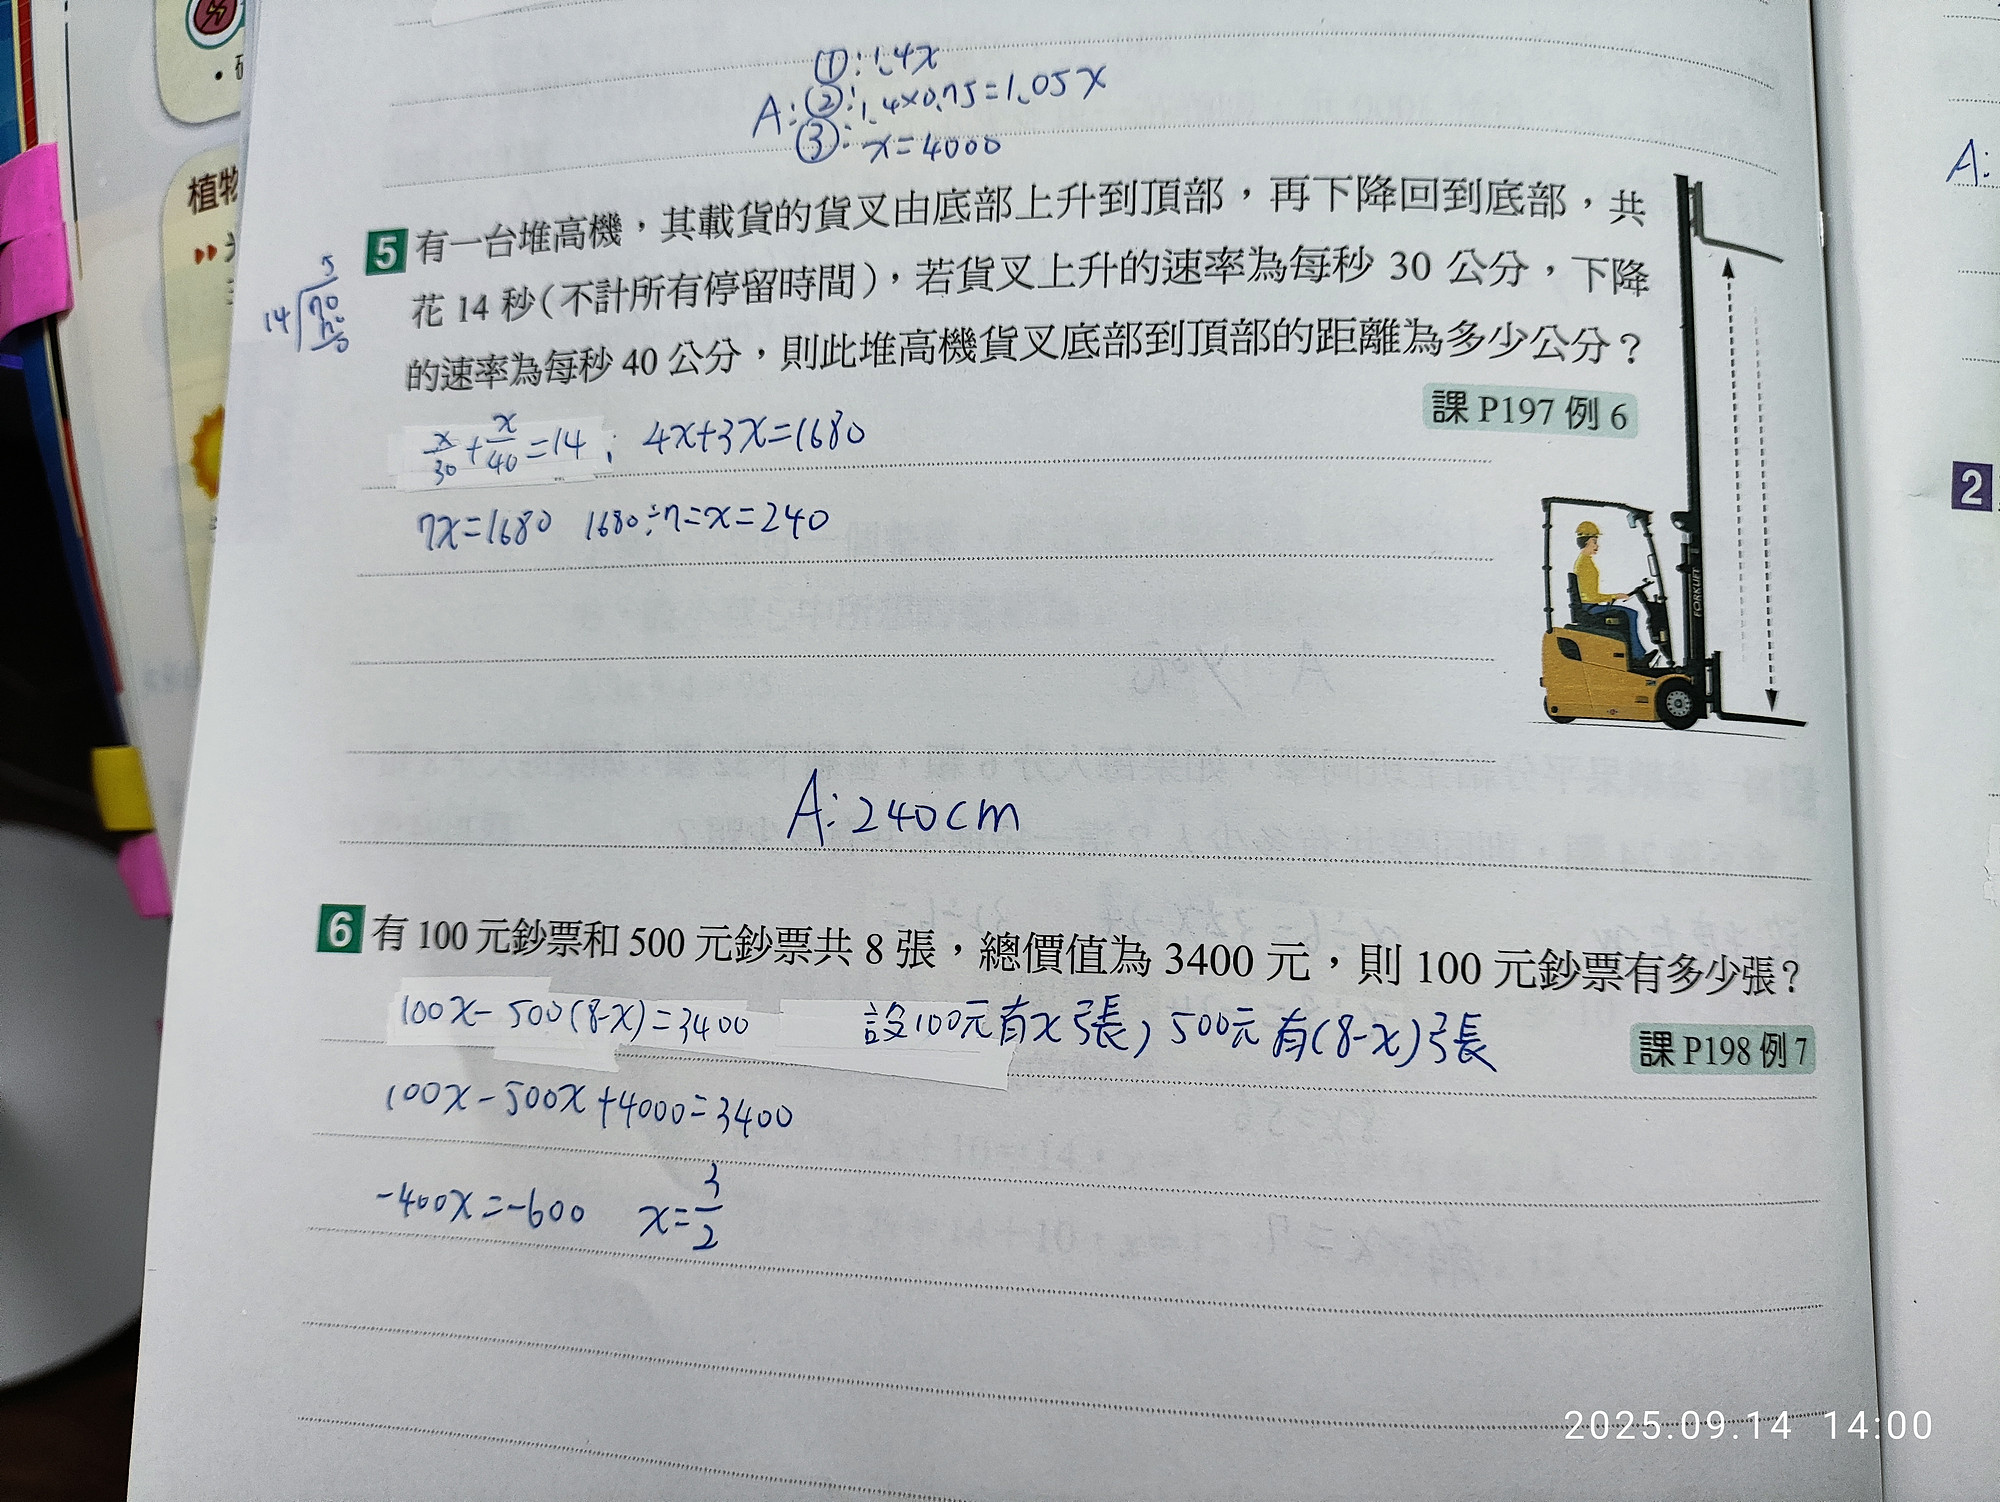 ①:1.4x
A:②:1.4×0.75=1.05x
③:x=4000
植物
5 有一台堆高機，其載貨的貨叉由底部上升到頂部，再下降回到底部，共
花 14 秒(不計所有停留時間)，若貨叉上升的速率為每秒 30 公分，下降
的速率為每秒 40 公分，則此堆高機貨叉底部到頂部的距離為多少公分？
5
14 70
70
0
課 P197 例 6
x/30+x/40=14; 4x+3x=1680
7x=1680 1680÷7=x=240
FORKLIFT
A:240cm
6 有 100 元鈔票和 500 元鈔票共 8 張，總價值為 3400 元，則 100 元鈔票有多少張？
100x-500(8-x)=3400 設100元有x張，500元有(8-x)張
課 P198 例 7
100x-500x+4000=3400
-400x=-600 x=3/2
A:
2
2025.09.14 14:00